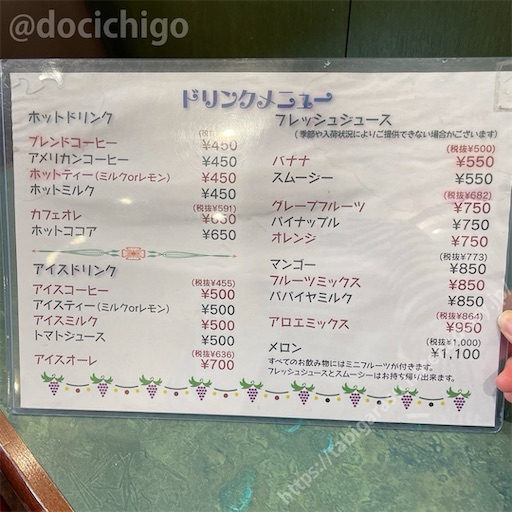 @docichigo
ドリンクメニュー
ホットドリンク
ブレンドコーヒー ¥450
アメリカンコーヒー ¥450
ホットティー(ミルクorレモン) ¥450
ホットミルク ¥450
(税抜¥591)
カフェオレ ¥650
ホットココア ¥650
アイスドリンク
(税抜¥455)
アイスコーヒー ¥500
アイスティー(ミルクorレモン) ¥500
アイスミルク ¥500
トマトジュース ¥500
(税抜¥636)
アイスオーレ ¥700
フレッシュジュース
(季節や入荷状況によりご提供できない場合がございます)
(税抜¥500)
バナナ ¥550
スムージー ¥550
(税抜¥682)
グレープフルーツ ¥750
パイナップル ¥750
オレンジ ¥750
(税抜¥773)
マンゴー ¥850
フルーツミックス ¥850
パパイヤミルク ¥850
(税抜¥864)
アロエミックス ¥950
(税抜¥1,000)
メロン ¥1,100
すべてのお飲み物にはミニフルーツが付きます。
フレッシュジュースとスムージーはお持ち帰り出来ます。